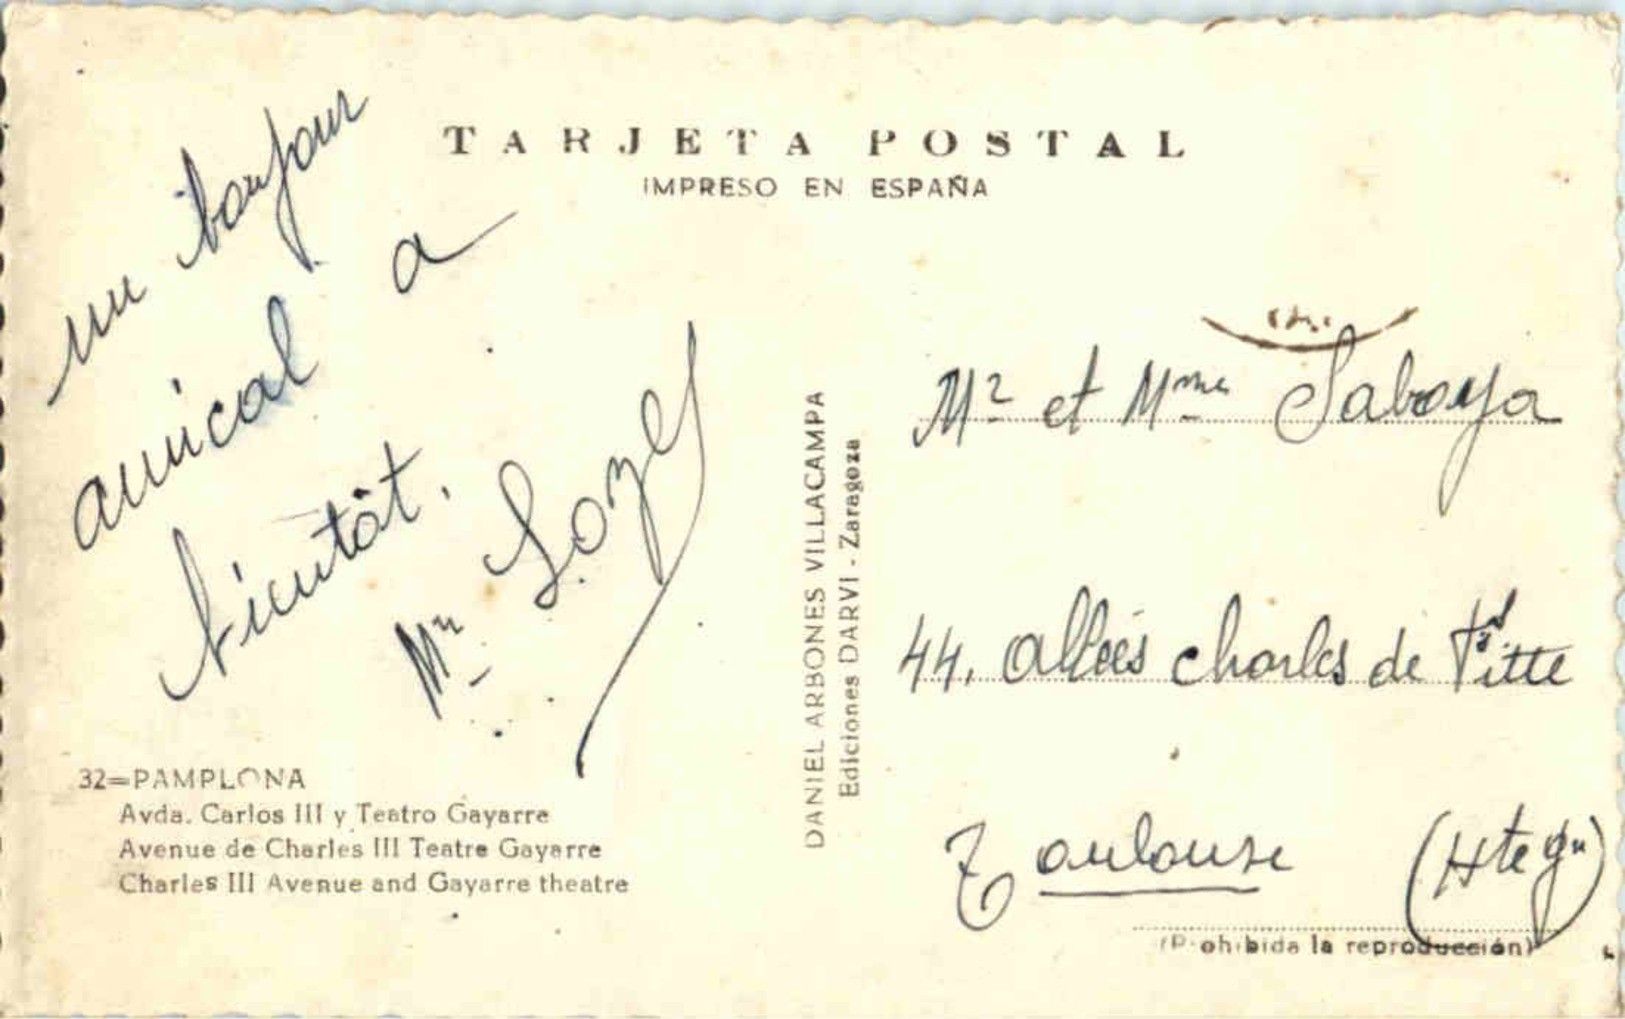 TARJETA POSTAL
IMPRESO EN ESPAÑA
un bonjour
amical a
bientôt.
Mr Lozes
Mr et Mme Saboya
44, allées charles de Fitte
Toulouse (Hte gne)
DANIEL ARBONES VILLACAMPA
Ediciones DARVI - Zaragoza
32=PAMPLONA
Avda. Carlos III y Teatro Gayarre
Avenue de Charles III Teatre Gayarre
Charles III Avenue and Gayarre theatre
(Prohibida la reproducción)